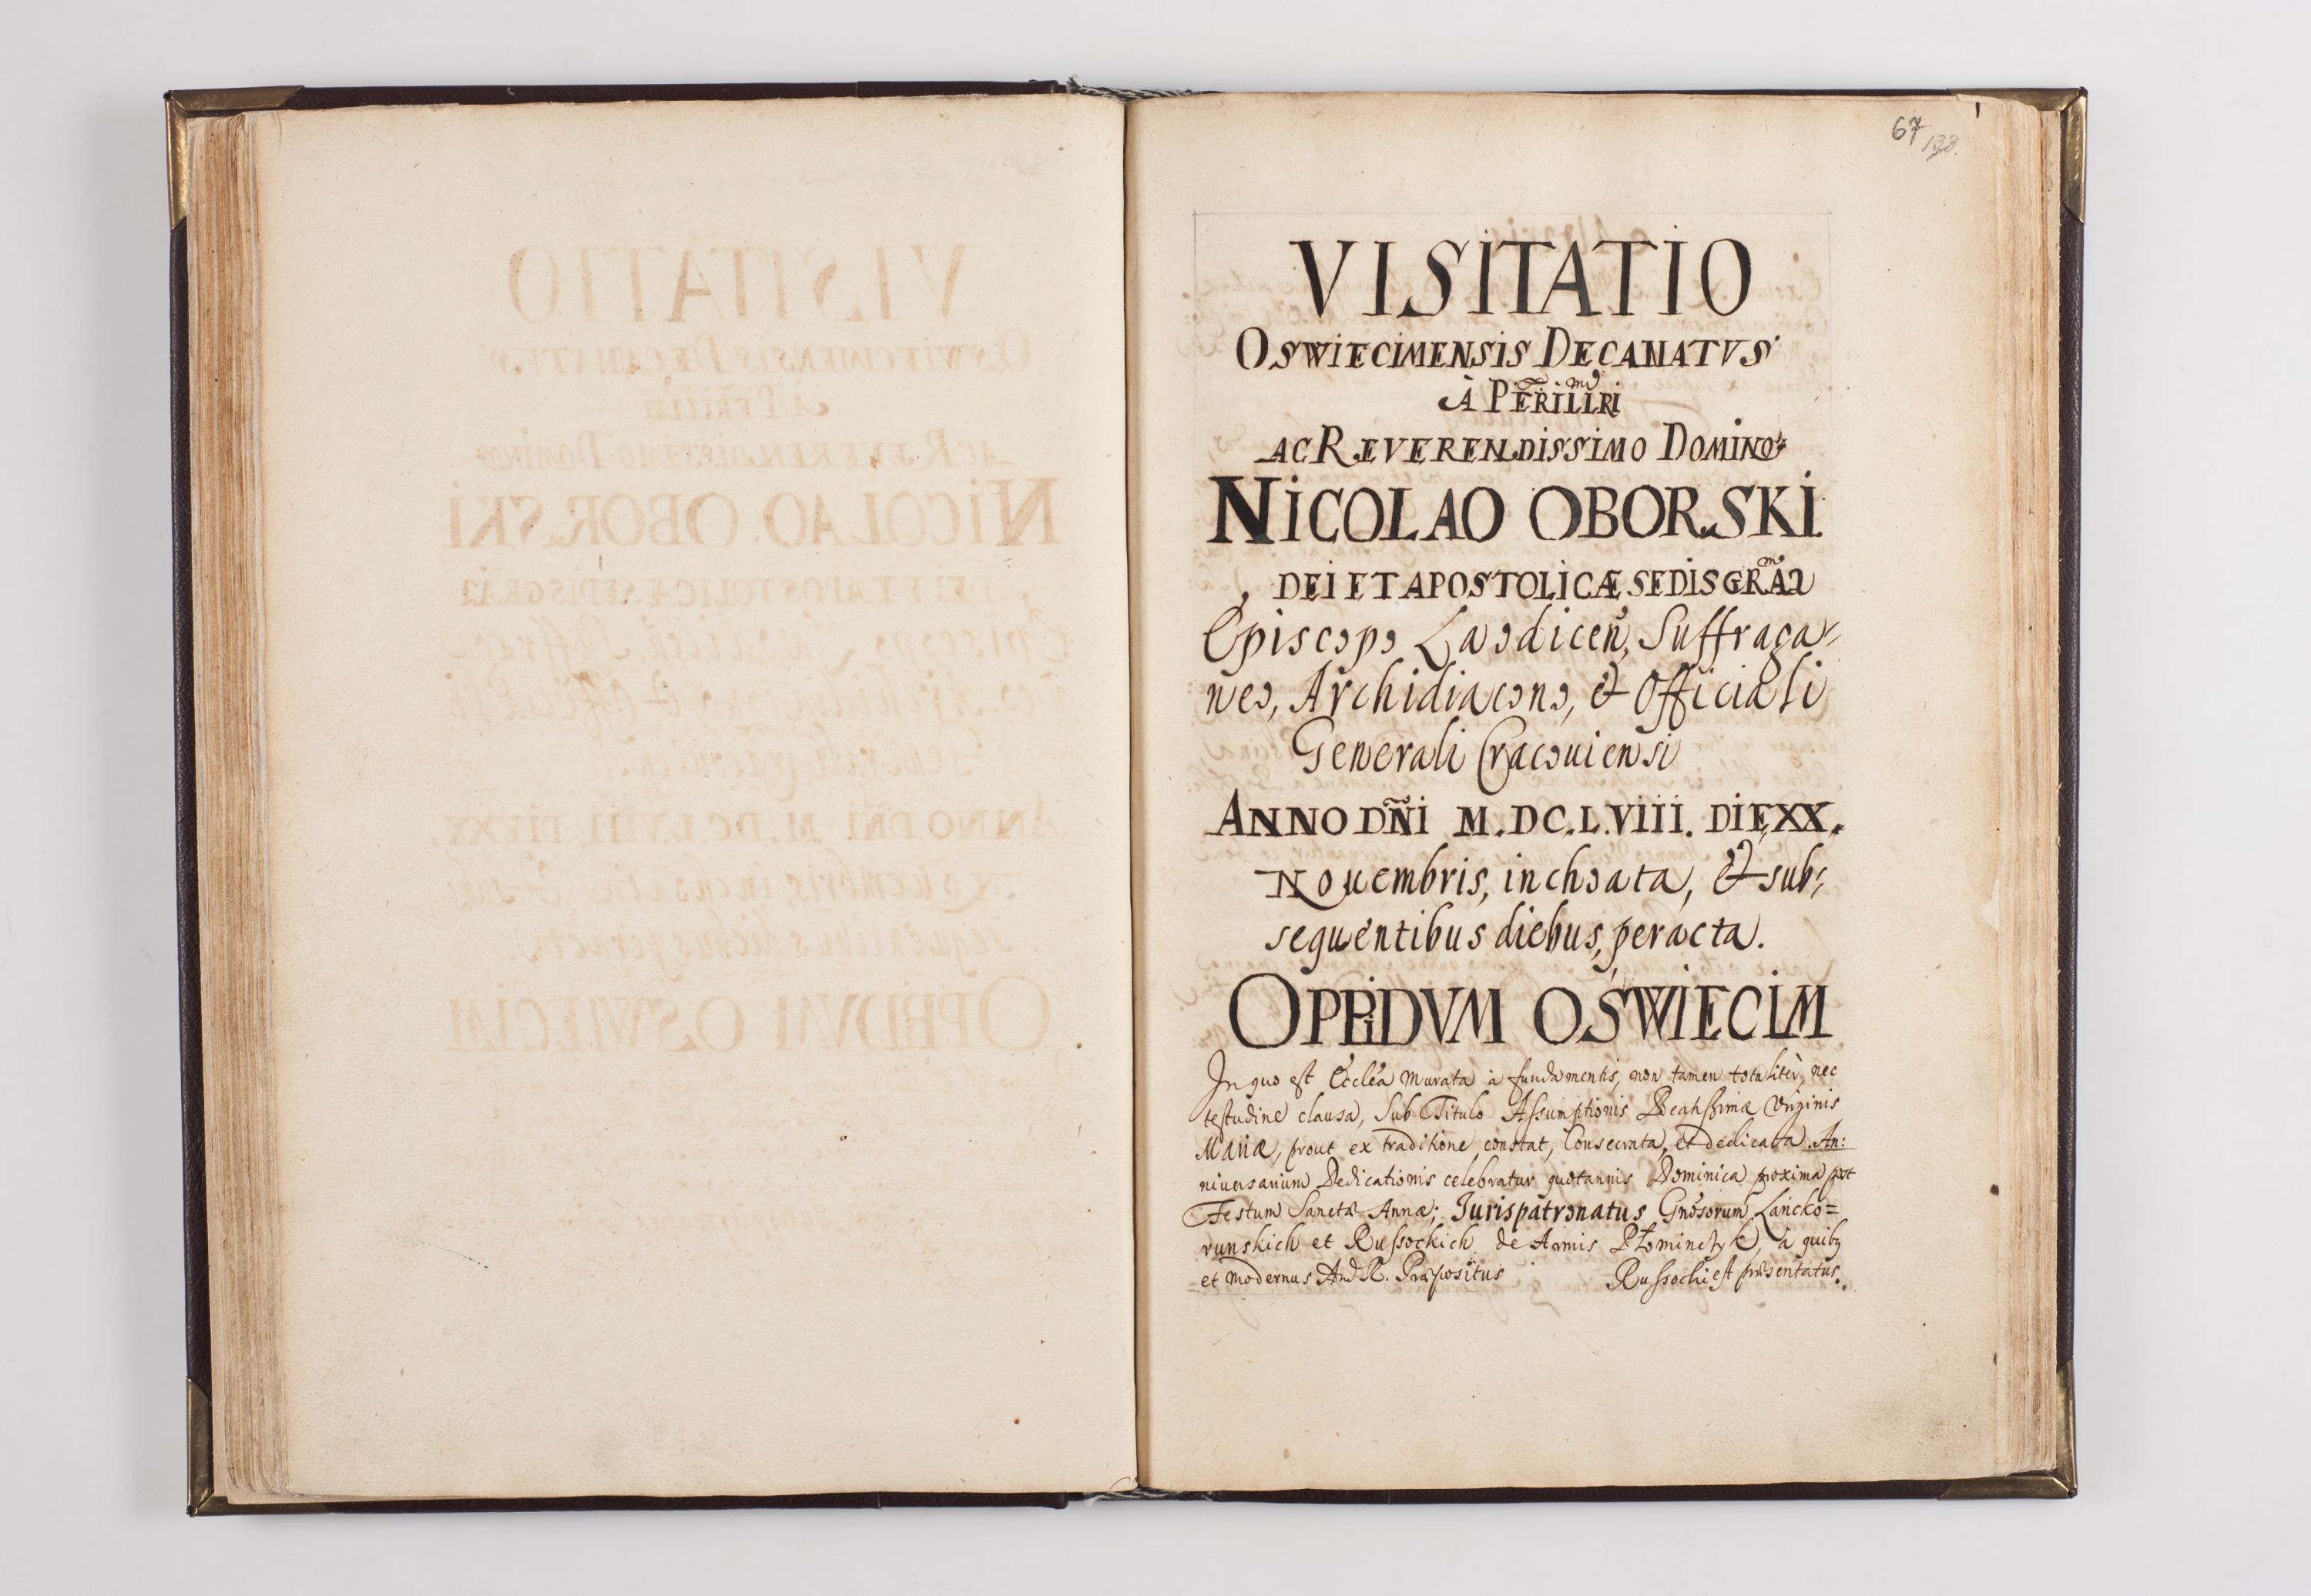 67
138.
VISITATIO
OSWIECIMENSIS DECANATVS
À PERILLRI mo
AC REVERENDISSIMO DOMINO
NICOLAO OBORSKI
DEI ET APOSTOLICÆ SEDIS GRÃA
Episcopo Laodiceñ, Suffraga-
neo, Archidiacono, & Officiali
Generali Cracouiensi
ANNO DÑI M.DC.L.VIII. DIE XX.
Nouembris, inchoata, & sub-
sequentibus diebus, peracta.
OPPIDVM OŚWIECIM
In quo est Ecclẽa murata à fundamentis, non tamen totalitèr, nec
testudine clausa, Sub Titulo Assumptionis Beatissimæ Virginis
Mariæ, prout ex traditione constat, Consecrata, et dedicata. An:
niuersarium Dedicationis celebratur quotannis Dominica proxima post
Festum Sanctæ Annæ; Jurispatronatus Gnõsorum Lancko=
runskich et Russockich de Armis Płominczyk, à quibꝫ
et modernus Ãnd R. Præpositus Russocki est præsentatus.